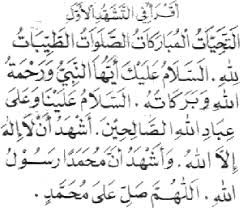 أَقْرَأُ فِي التَّشَهُّدِ الْأَوَّلِ
اَلتَّحِيَّاتُ الْمُبَارَكَاتُ الصَّلَوَاتُ الطَّيِّبَاتُ
لِلّٰهِ. اَلسَّلَامُ عَلَيْكَ أَيُّهَا النَّبِيُّ وَرَحْمَةُ
اللهِ وَبَرَكَاتُهُ. اَلسَّلَامُ عَلَيْنَا وَعَلَى
عِبَادِ اللهِ الصَّالِحِيْنَ. أَشْهَدُ أَنْ لَا إِلٰهَ
إِلَّا اللهُ. وَأَشْهَدُ أَنَّ مُحَمَّدًا رَسُوْلُ
اللهِ. اَللّٰهُمَّ صَلِّ عَلَى مُحَمَّدٍ.